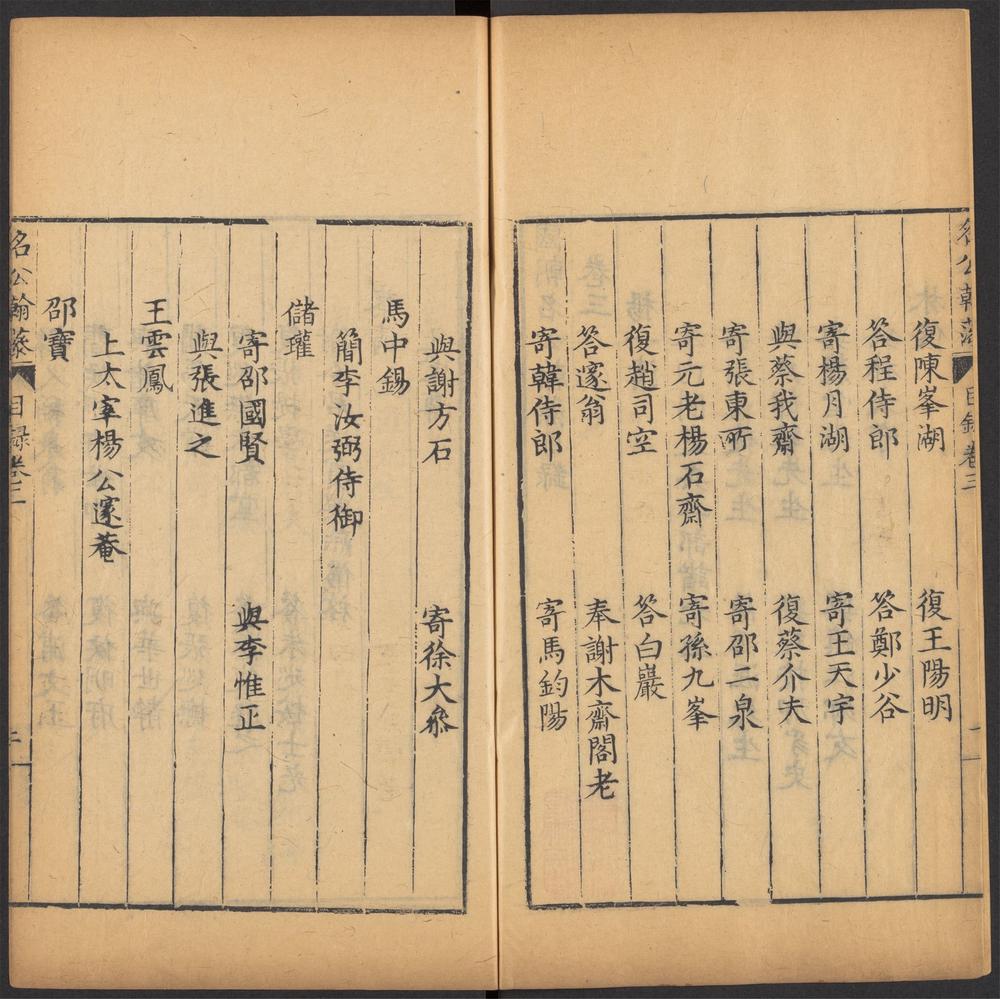 名公翰藻 目錄卷三 二
復陳峯湖 復王陽明
答程侍郎 答鄭少谷
寄楊月湖 寄王天宇
與蔡我齋 復蔡介夫
寄張東所 寄邵二泉
寄元老楊石齋 寄孫九峯
復趙司空 答白巖
答邃翁 奉謝木齋閣老
寄韓侍郎 寄馬鈞陽
與謝方石 寄徐大叅
馬中錫
簡李汝弼侍御
儲瓘
寄邵國賢 與李惟正
與張進之
王雲鳳
上太宰楊公邃菴
邵寶
名公翰藻 目錄卷三